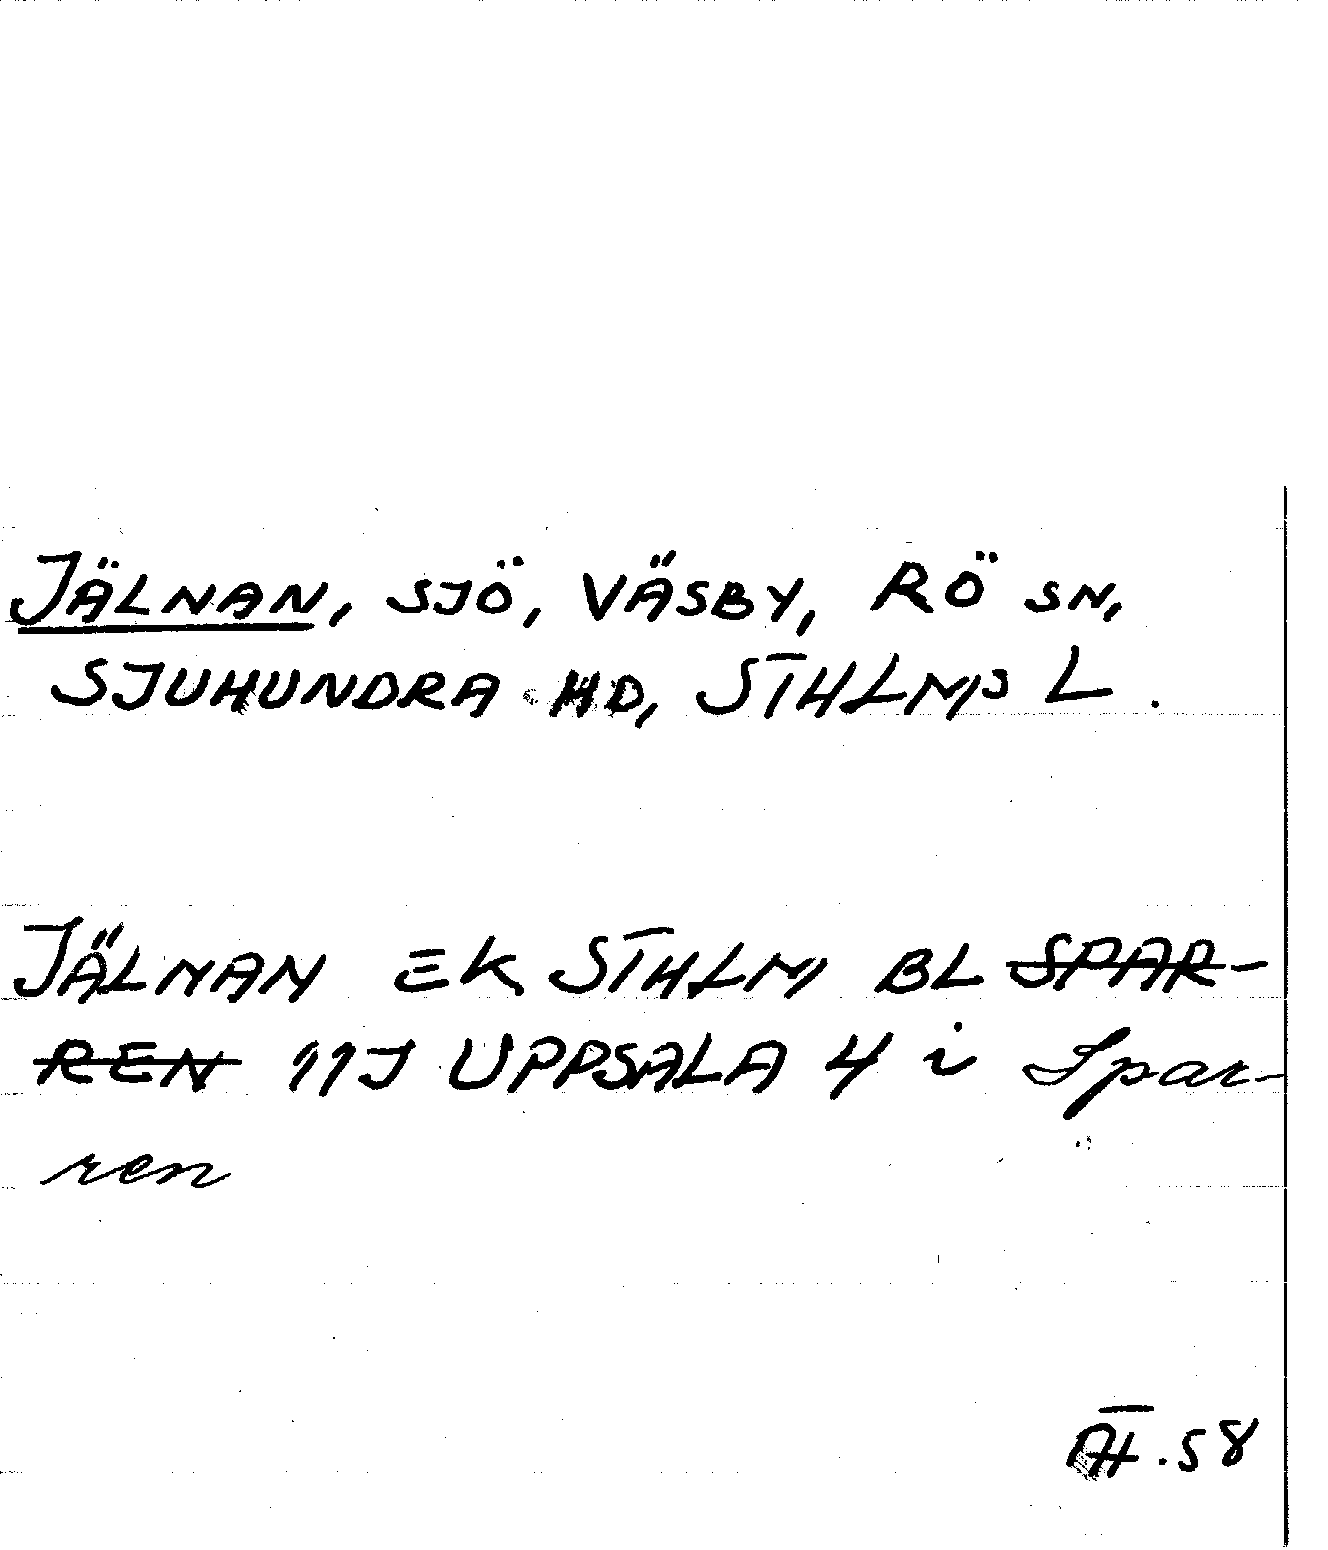 JÄLNAN, SJÖ, VÄSBY, RÖ SN,
SJUHUNDRA HD, STHLMS L.
JÄLNAN EK STHLM BL SPAR-
REN 11J UPPSALA 4 i Spar-
ren
AH.58